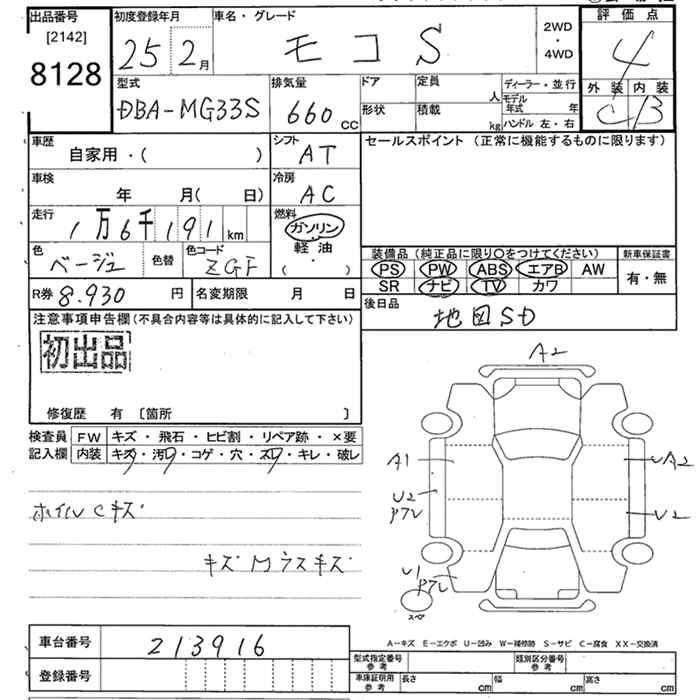 出品番号
[2142]
8128
初度登録年月
25 2月
車名・グレード
モコ S
2WD
・
4WD
評価点
4
外装 内装
C B
型式
DBA-MG33S
排気量
660 cc
ドア
形状
定員 人
積載 kg
ディーラー・並行
モデル年式 年
ハンドル 左・右
車歴
自家用・( )
シフト
AT
セールスポイント (正常に機能するものに限ります)
車検
年 月( 日)
冷房
AC
走行
1万6千191 km
燃料
ガソリン
軽油
・
( )
色
ベージュ
色替
色コード
ZGF
装備品 (純正品に限り○をつけてください)
新車保証書
PS PW ABS エアB AW
SR ナビ TV カワ
有・無
R券 8.930 円
名変期限 月 日
後日品
地図SD
注意事項申告欄(不具合内容等は具体的に記入して下さい)
初出品
修復歴 有 [箇所 ]
検査員
記入欄
FW キズ・飛石・ヒビ割・リペア跡・×要
内装 キズ・汚・コゲ・穴・スレ・キレ・破レ
ホイルCキズ
キズ Mラスキズ
A2
A1
A2
U2
U2
U1
スペア
A-キズ E-エクボ U-凹み W-補修跡 S-サビ C-腐食 XX-交換済
車台番号
213916
登録番号
型式指定番号
参考
類別区分番号
参考
車庫証明用
参考
長さ cm
幅 cm
高さ cm